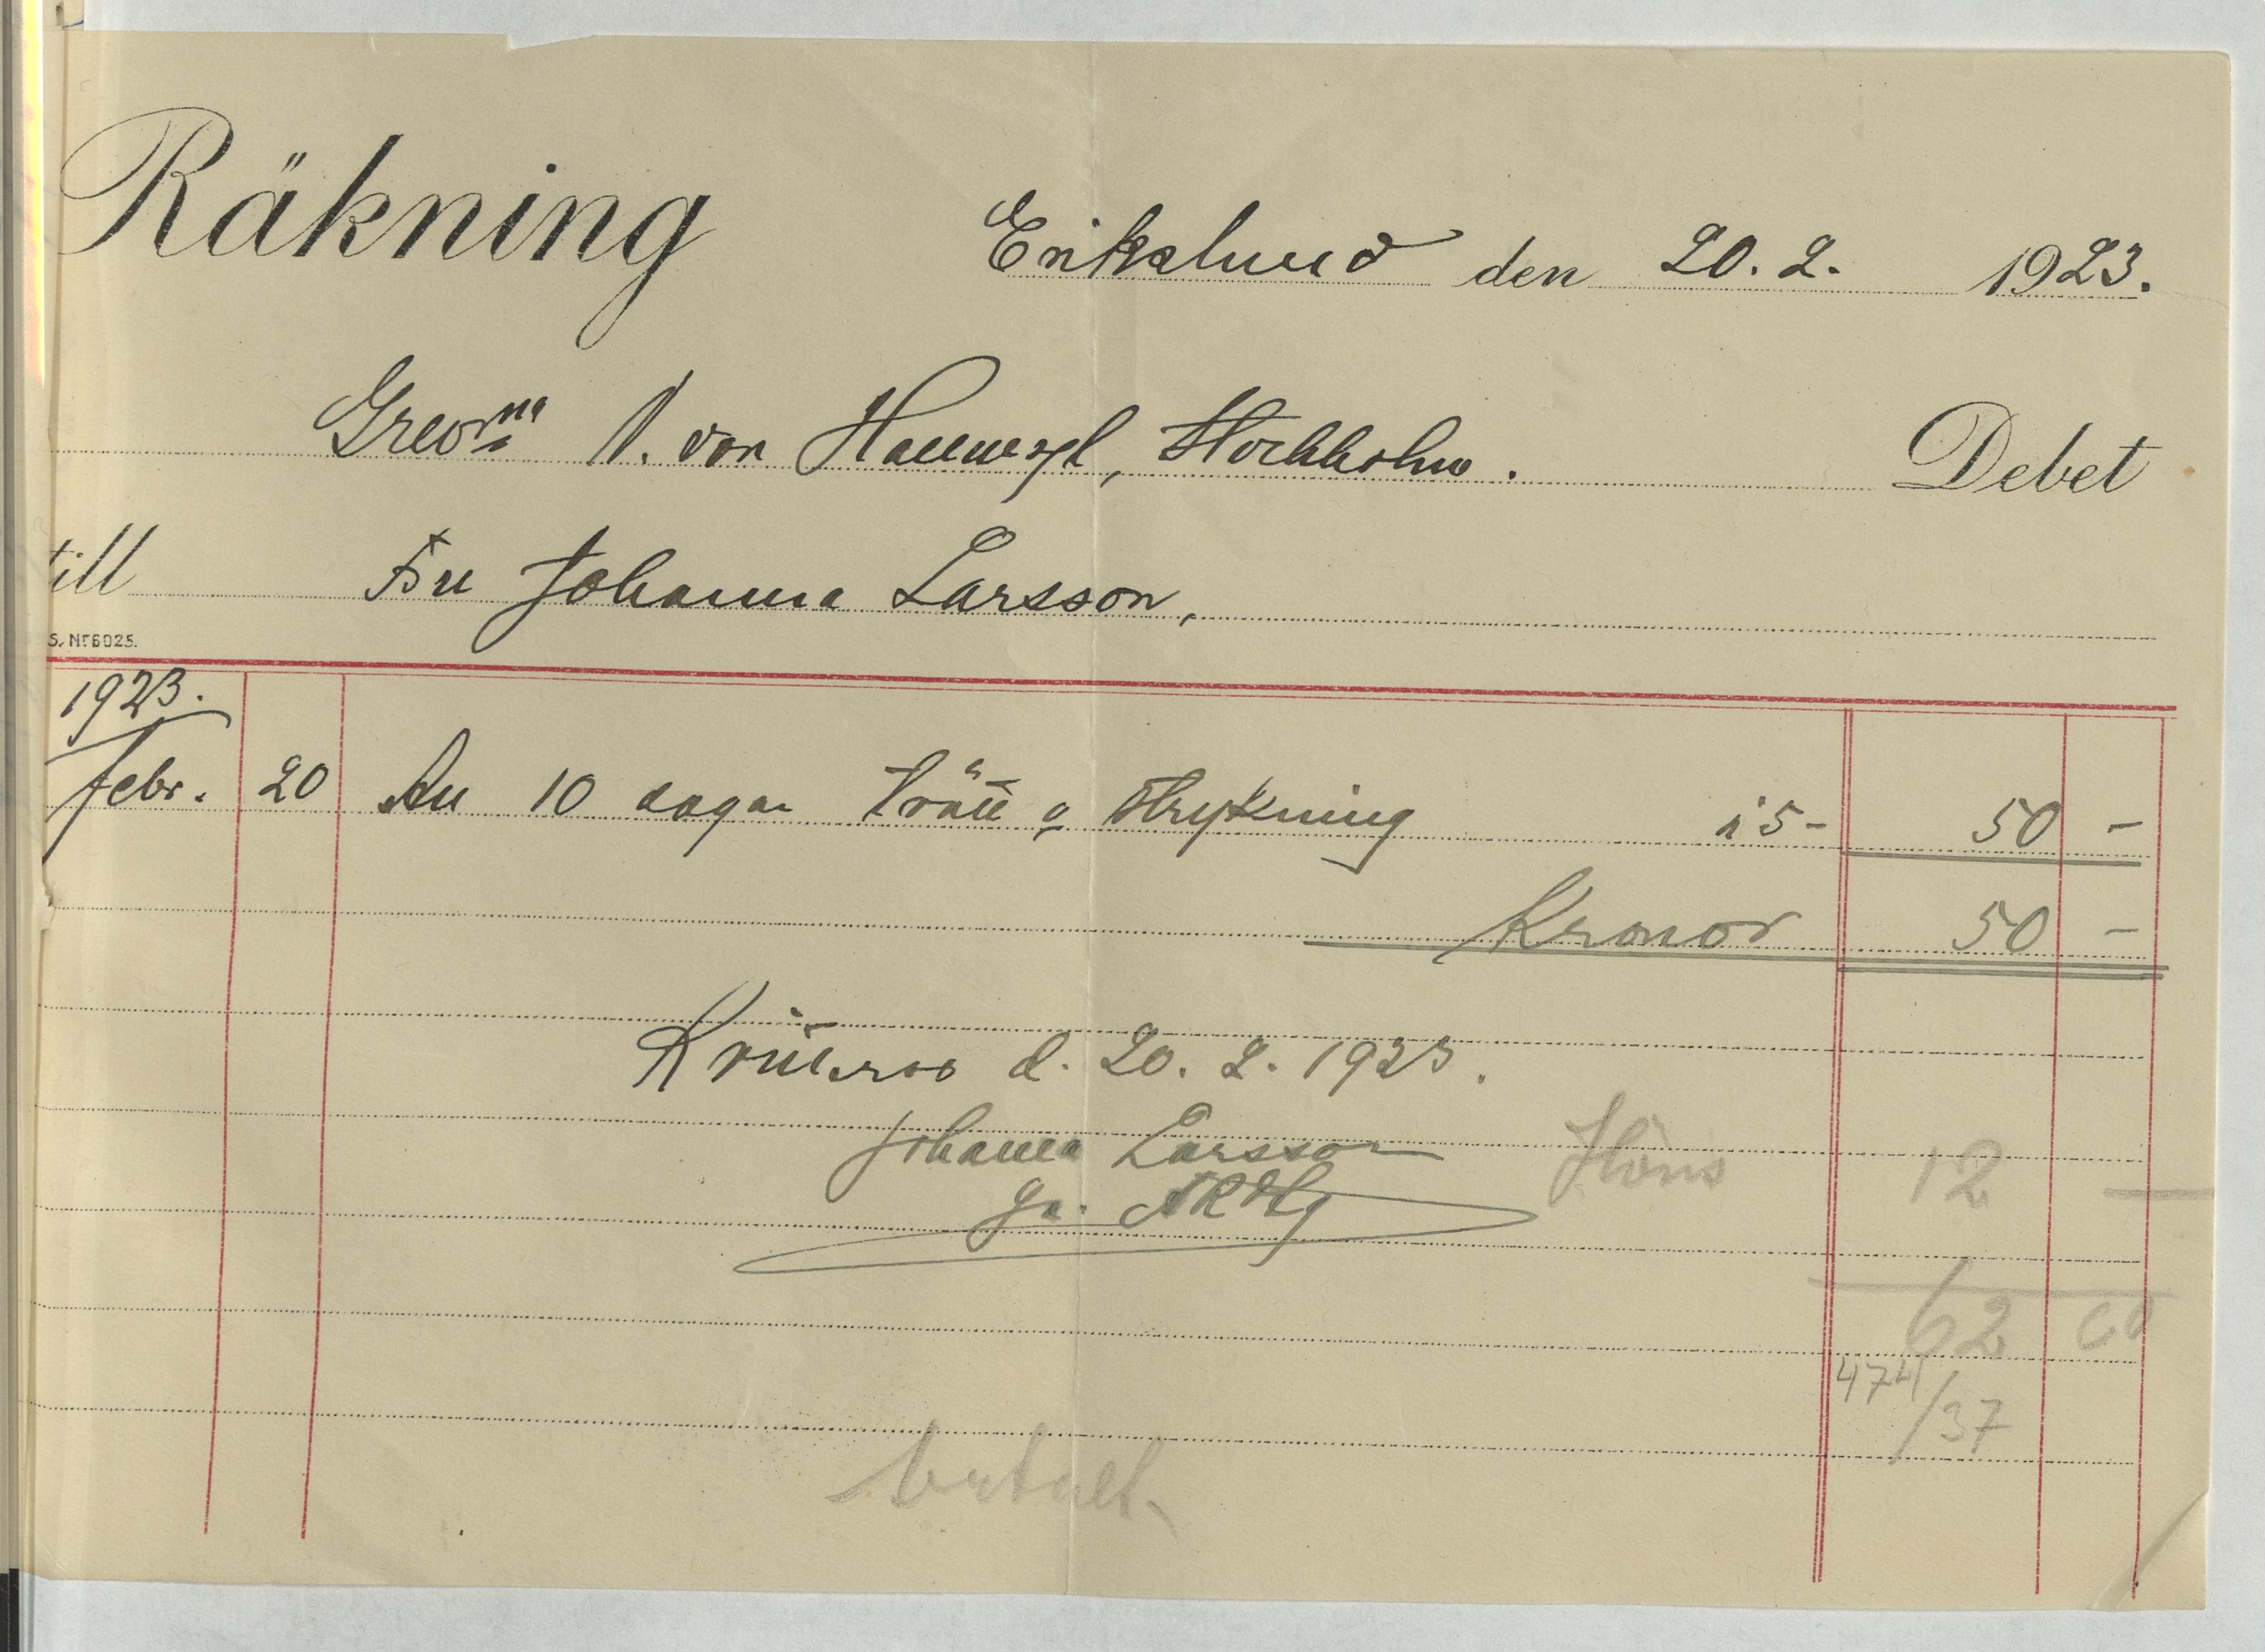 Räkning
Erikslund den 20. 2. 1923.
W. von Hallwyl, Stockholm. Debet
till Fru Johanna Larsson,
S. Nr 6025.
1923.
febr. 20 An 10 dagar tvätt o strykning à 5- 50 -
Kronor 50 -
Kvitteras d. 20. 2. 1923.
Johanna Larsson
Höns 12 —
62 00
474/37
betalt